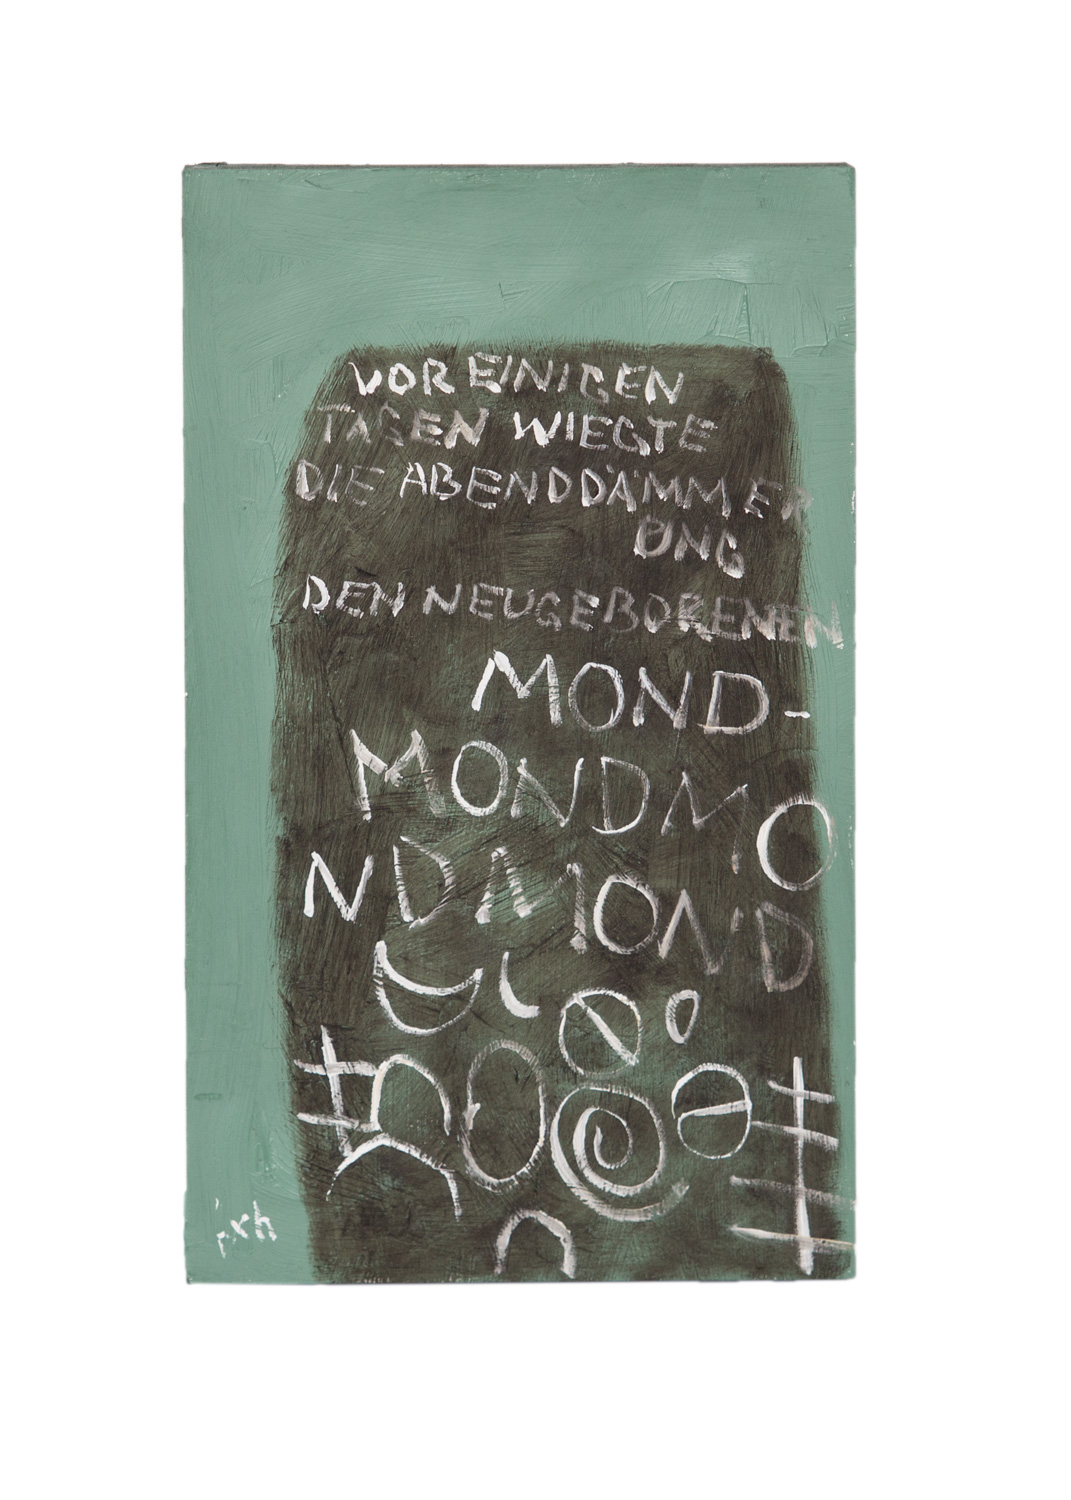 VOR EINIGEN
TAGEN WIEGTE
DIE ABENDDÄMMER
UNG
DEN NEUGEBORENEN
MOND-
MONDMO
NDMOND